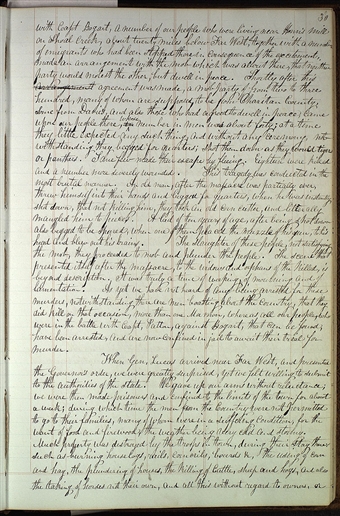 30
with Capt. Bogart, a number of our people who were living near Haun's mill
on Shoal Creek, about twenty miles below Far West, together with a number
of emigrants who had been stopped there in consequence of the excitement,
made an arrangement with the mob which was about there, that neither
party would molest the other, but dwell in peace. Shortly after this
agreement was made, a mob party of from two to three
hundred, many of whom are supposed to be from Chariton County,
some from Daviess, and also those who had agreed to dwell in peace, came
upon our people there, whose number in men was about forty; at a time
they little expected any such thing, and without any ceremony, not-
withstanding they begged for quarters, shot them down as they would tigers
or panthers. Some few made their escape by fleeing. Eighteen were killed
and a number more severely wounded. This tragedy was conducted in the
most brutal manner. An old man, after the massacre was partially over,
threw himself into their hands and begged for quarters, when he was instantly
shot down; that not killing him, they took an old corn cutter, and literally
mangled him to pieces. A lad of ten years of age, after being shot down
also begged to be spared, when one of them placed the muzzle of his gun to his
head and blew out his brains. The slaughter of these people, not satisfying
the mob, they proceeded to mob and plunder the people. The scene that
presented itself after the massacre, to the widows and orphans of the killed, is
beyond description. It was truly a time of weeping, of mourning and of
lamentation. As yet we have not heard of any being arrested, for these
murders, notwithstanding there are men boasting about the country, that they
did kill on that occasion, more than one Mormon, whereas all our people, who
were in the battle with Capt. Patten, against Bogart, that can be found,
have been arrested, and are now confined in jail to await their trial for
murder.
When Gen. Lucas arrived near Far West, and presented
the Governor's order, we were greatly surprised, yet we felt willing to submit
to the authorities of the state. We gave up our arms without reluctance;
we were then made prisoners and confined to the limits of the town for about
a week; during which time the men from the Country were not permitted
to go to their families, many of whom were in a suffering condition, for the
want of food and firewood, the weather being very cold and stormy.
Much property was destroyed by the troops in town, during their stay there
such as burning house logs, rails, corn cribs, boards &c, the using of corn
and hay, the plundering of houses, the killing of cattle, sheep and hogs, and also
the taking of horses not their own, and all this without regard to owners, or